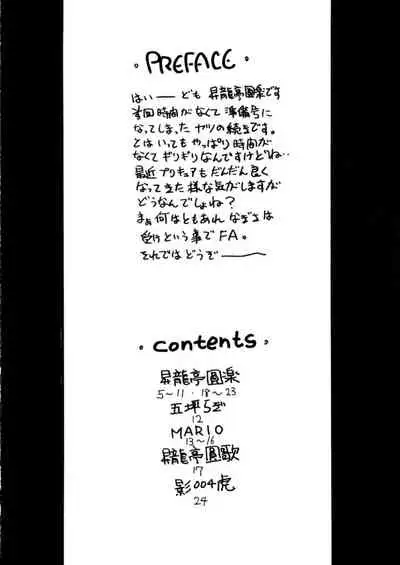 ・PREFACE・
はい――ども 昇龍亭圓楽です
前回時間がなくて準備号に
なってしまったヤツの続きです。
とはいってもやっぱり時間が
なくてギリギリなんですけどね…
最近プリキュアもだんだん良く
なってきた様な気がしますが
どうなんでしょね?
まぁ何はともあれ なぎさは
受けという事でFA。
それではどうぞ――
・contents・
昇龍亭圓楽
5～11・18～23
五坪らぎ
12
MARIO
13～16
昇龍亭圓歌
17
影004虎
24